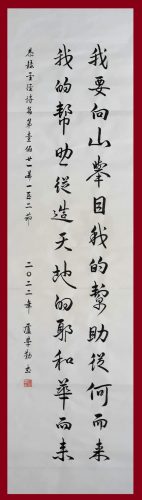 我要向山舉目我的幫助從何而來
我的幫助從造天地的耶和華而来
恭錄聖經詩篇第壹佰廿一篇一至二節
二〇二二年